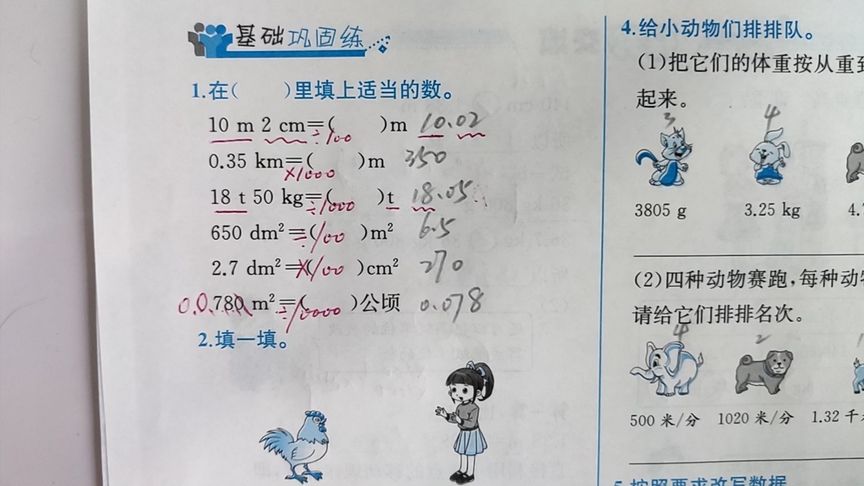 基础巩固练
1.在(　　)里填上适当的数。
10 m 2 cm=(　　)m 10.02
÷100
0.35 km=(　　)m 350
×1000
18 t 50 kg=(　　)t 18.05
÷1000
650 dm²=(　　)m² 6.5
÷100
2.7 dm²=(　　)cm² 270
×100
0.0 780 m²=(　　)公顷 0.078
÷10000
2.填一填。
4.给小动物们排排队。
(1)把它们的体重按从重到
起来。
3 4
3805 g 3.25 kg 4.
(2)四种动物赛跑,每种动
请给它们排排名次。
4 2
500 米/分 1020 米/分 1.32 千
5.按照要求改写数据